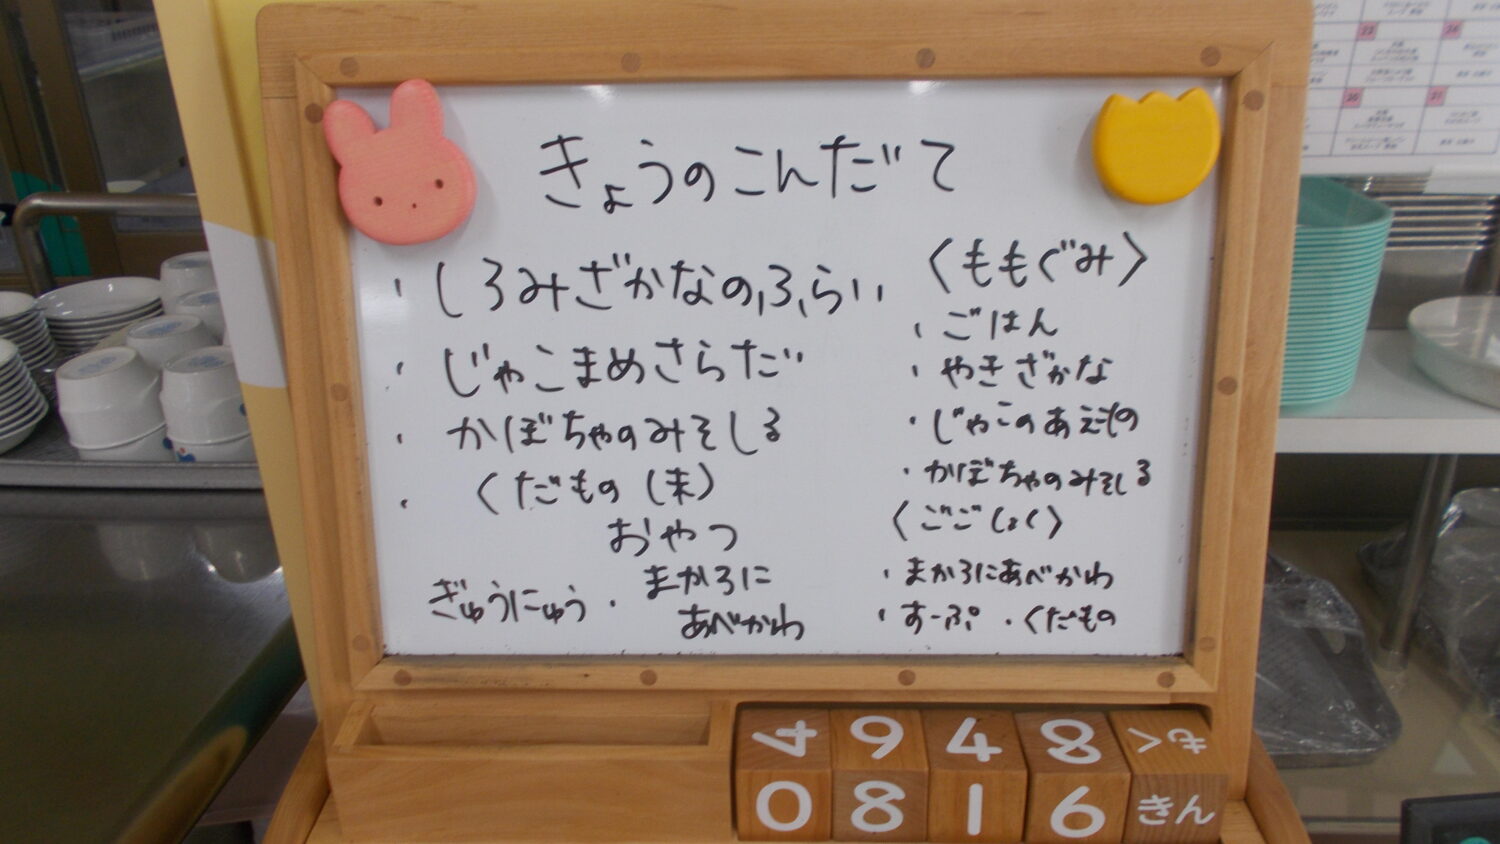 きょうのこんだて
・しろみざかなのふらい
・じゃこまめさらだ
・かぼちゃのみそしる
・くだもの(末)
おやつ
ぎゅうにゅう・まかろに
あべかわ
〈ももぐみ〉
・ごはん
・やきざかな
・じゃこのあえもの
・かぼちゃのみそしる
〈ごごしょく〉
・まかろにあべかわ
・すーぷ・くだもの
4 9 4 8 もく
0 8 1 6 きん